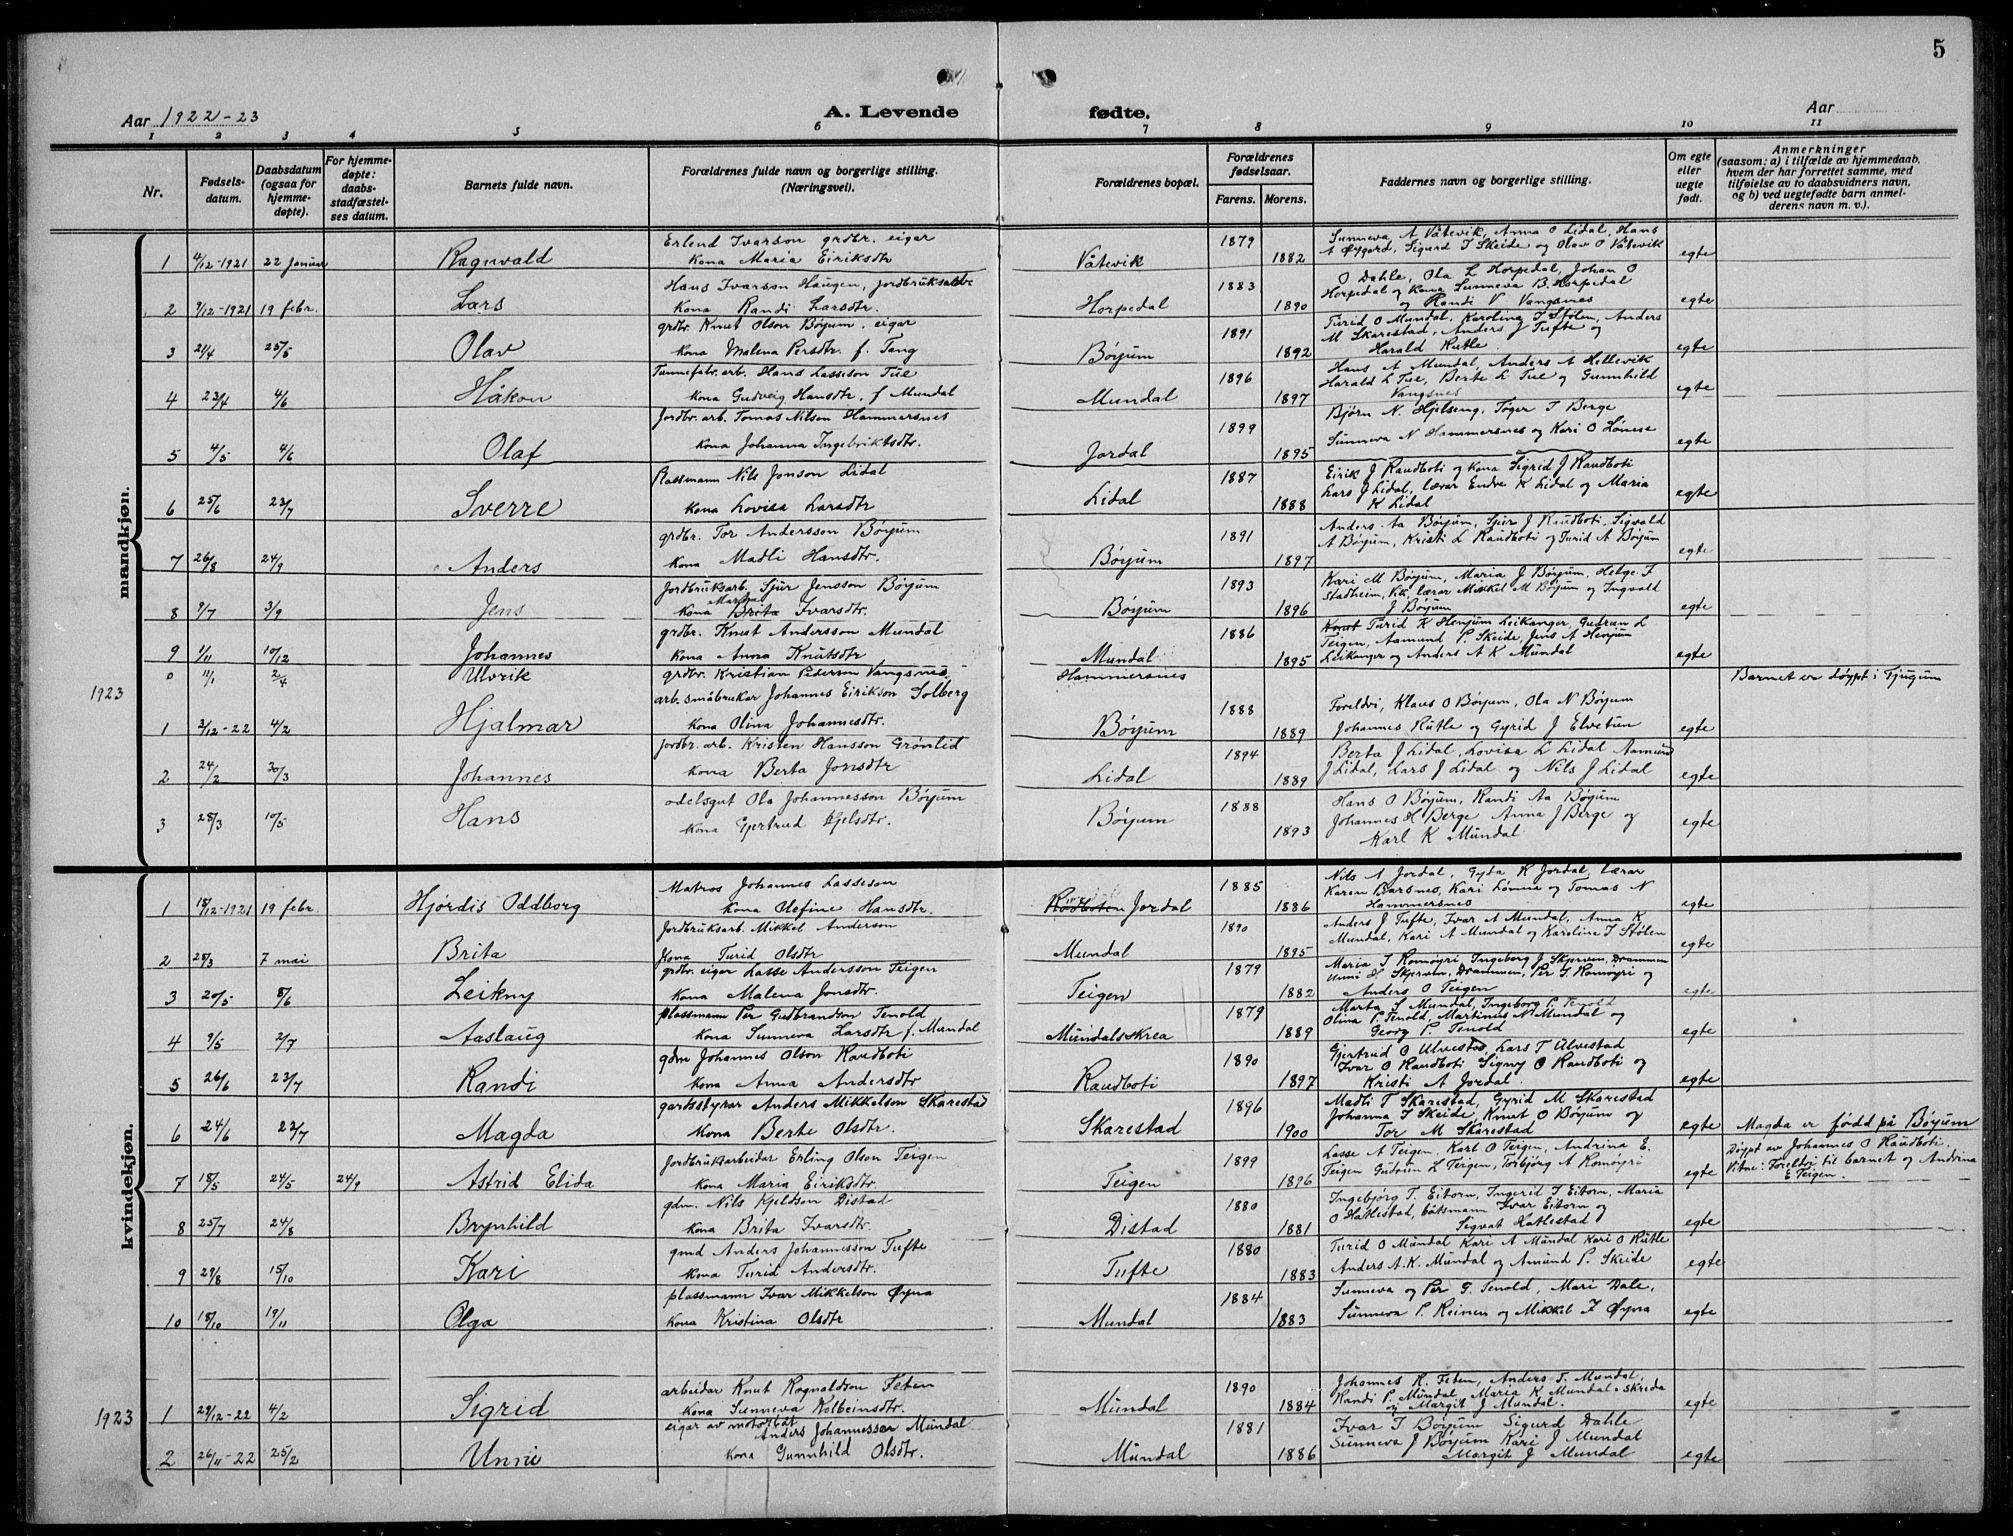 5
Aar 1922-23
A. Levende fødte.
Aar
1 2 3 4 5 6 7 8 9 10 11
Nr.
Fødsels-datum.
Daabsdatum (ogsaa for hjemme-døpte).
For hjemme-døpte: daabs-stadfæstel-ses datum.
Barnets fulde navn.
Forældrenes fulde navn og borgerlige stilling. (Næringsvei).
Forældrenes bopæl.
Forældrenes fødselsaar.
Farens. Morens.
Faddernes navn og borgerlige stilling.
Om egte eller uegte født.
Anmerkninger (saasom: a) i tilfælde av hjemmedaab, hvem der har forrettet samme, med tilføielse av to daabsvidners navn, og b) ved uegtefødte barn anmel-derens navn m. v.).
mandkjøn.
1 4/12-1921 22 januar Ragnvald Erlend Ivarson grdbr. eigar kona Maria Eiriksdtr Vatevik 1879 1882 Sunneva A Våtevik, Anna O Lidal, Hans A Øygard, Sigurd I Skeide og Olav O Våtevik egte
2 7/12-1921 19 febr. Lars Hans Ivarson Haugen, kona Randi Larsdtr. Horpedal 1883 1890 O Dahle, Ola L Horpedal, Johan O Horpedal og kona Sunneva B. Horpedal og Randi V Vangsnes egte
3 21/4 25/5 Olav grdbr. Knut Olson Bøyum, eigar kona Malena Persdtr. f. Tang Bøyum 1891 1892 Turid O Mundal, Karolina I Stølen, Anders M Skarestad, Anders J Tufte og Harald Rutle. egte
4 23/4 4/6 Håkon Tunnefabr. arb. Hans Lasseson Tue kona Gudveig Hansdtr. f Mundal Mundal 1896 1897 Hans A Mundal, Anders A Hellevik Harald L Tue, Berte L Tue og Gunnhild Vangsnes egte
5 4/5 4/6 Olaf Jordbr. arb. Tomas Nilson Hammersnes kona Johanna Ingebriktsdtr. Jordal 1899 1895 Bjørn N. Hjelseng, Tøger T Berge Sunneva N Hammersnes og Kari O Lønne egte
6 25/6 23/7 Sverre Plassmann Nils Jonson Lidal kona Lovisa Larsdtr Lidal 1887 1888 Eirik J Raudboti og kona Sigrid J Raudboti Lars J Lidal, lærar Endre K Lidal og Maria K Lidal egte
7 26/8 24/9 Anders grdbr. Tor Andersson Bøyum kona Madli Hansdtr. Bøyum 1891 1897 Anders Aa Bøyum, Sjur J Raudboti, Sigvald A Bøyum, Kristi L Raudboti og Turid A Bøyum egte
8 9/7 3/9 Jens Jordbruksarb. Sjur Jensson Bøyum kona Marta Brita Ivarsdtr. Bøyum 1893 1896 Kari M Bøyum, Maria J Bøyum, Helge I Stadheim, kk. lærar Mikkel M Bøyum og Ingvald J Bøyum egte
9 1/11 10/12 Johannes grdbr. Knut Andersson Mundal kona Anna Knutsdtr Mundal 1886 1895 Knut Turid K Henjum Leikanger, Gudrun L Teigen, Aamund P. Skeide, Jens A Henjum Leikanger og Anders A K Mundal egte
1923
0 11/1 2/4 Ulvrik grdbr. Kristian Pederson Vangsnes Hammersnes Barnet er døypt i Tjugum
1 3/12-22 4/2 Hjalmar arb. småbrukar Johannes Eirikson Solberg kona Olina Johannesdtr. Bøyum 1888 1889 Foreldri, Klaus O Bøyum, Ola N Bøyum Johannes Rutle og Gyrid J Elvetun egte
2 24/2 30/3 Johannes jordbr. arb. Kristen Hansson Grønlid kona Berta Jonsdtr Lidal 1894 1889 Berta J Lidal, Lovisa L Lidal Aamund J Lidal, Lars J Lidal og Nils J Lidal egte
3 28/3 10/5 Hans odelsgut Ola Johannesson Bøyum kona Gjertrud Kjelsdtr. Bøyum 1888 1893 Hans O Bøyum, Randi Aa Bøyum Johannes H Berge Anna J Berge og Karl K Mundal egte
kvindekjøn.
1 18/12-1921 19 febr. Hjørdis Oddborg Matros Johannes Lasseson kona Olefine Hansdtr. Jordal 1885 1886 Nils A Jordal, Gyda K Jordal, lærar Karen Barsnes, Kari Lønne og Tomas N Hammersnes egte
2 28/3 7 mai Brita Jordbruksarb. Mikkel Anderson kona Turid Olsdtr Mundal 1890 1895 Anders J Tufte, Ivar A Mundal, Anna K Mundal, Kari A Mundal og Karoline I Stølen egte
3 20/5 8/6 Leikny grdbr. eigar Lasse Andersson Teigen kona Malena Jonsdtr. Teigen 1879 1882 Maria I Romøyri, Ingeborg J Skyrven, Drammen Unni H Skyrven, Drammen, Per G Romøyri og Anders O Teigen egte
4 9/5 2/7 Aaslaug plassmann Per Gudbrandson Tenold kona Sunneva Harsdtr f. Mundal Mundalsskrea 1879 1889 Marta S Mundal, Ingeborg P Tenold Olina P. Tenold, Martinus N Mundal og Georg P. Tenold egte
5 26/6 23/7 Randi gdm Johannes Olson Raudboti kona Anna Andersdtr Raudboti 1890 1897 Gjertrud O Ulvestad, Lars T Ulvestad Ivar O Raudboti Signy O Raudboti og Kristi A Jordal. egte
6 24/6 23/7 Magda gardsstyrar Anders Mikkelson Skarestad kona Berte Olsdtr. Skarestad 1896 1900 Madli T Skarestad, Gyrid M Skarestad Johanna I Skeide, Knut O Bøyum og Tor M Skarestad egte Magda er fødd på Bøyum
7 18/5 24/5 24/9 Astrid Elida Jordbruksarbeidar Erling Olson Teigen kona Maria Eiriksdtr Teigen 1899 1896 Lasse A Teigen, Karl O Teigen, Andrina E. Teigen Gudrun L Teigen, Torbjørg A Romøyri egte Døypt av Johannes O Raudboti. Vitne: Foreldri til barnet og Andrina E Teigen.
8 25/7 24/8 Brynhild gdm. Nils Kjeldson Distad kona Brita Ivarsdtr. Distad 1880 1881 Ingebjørg T. Eitorn, Ingerid I Eitorn, Maria O Hatlestad, båtsmann Ivar Eitorn og Sigvat Hatlestad egte
9 29/8 15/10 Kari gmd Anders Johannesson Tufte kona Turid Andersdtr. Tufte 1880 1883 Turid O Mundal Kari A Mundal Kari O Rutle Anders A. K. Mundal og Amund P. Skeide egte
10 18/10 19/11 Olga plassmann Ivar Mikkelson Øyna kona Kristina Olsdtr Mundal 1884 1883 Sunneva og Per G. Tenold, Mari Dale, Sunneva P. Reinen og Mikkel I Øyna egte
1923
1 29/12-22 4/2 Sigrid arbeidar Knut Rognaldson Feten kona Sunneva Kolbeinsdtr. Mundal 1890 1884 Johannes R. Feten, Anders T. Mundal, Randi P. Mundal, Maria K Mundal-skreda og Margit J Mundal. egte
2 26/11-22 25/2 Unni eigar av motorbåt Anders Johannessen Mundal kona Gunnhild Olsdtr. Mundal 1881 1886 Ivar T Bøyum Sigurd Dahle Sunneva J Bøyum Kari J Mundal Margit J Mundal egte